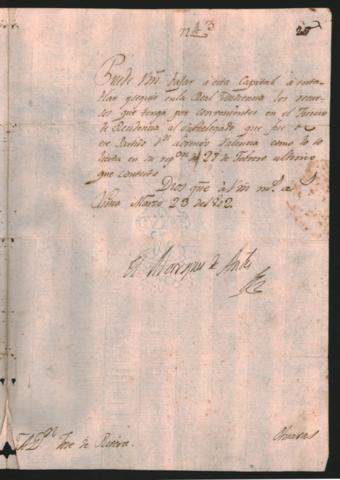 N. 3
Puede Vm. bajar á esta Capital á enta-
blar y seguir en la Real Audiencia los recur-
sos que tenga por convenientes en el
de Residencia al Subdelegado que fue de
ese Partido Dn. Valencia como lo so-
licita en su de 27 de Febrero ultimo
que contexto.
Dios gue. á Vm. ms. as.
Lima Marzo 23 de 1812.
El Marques de
Jose de Rivera.